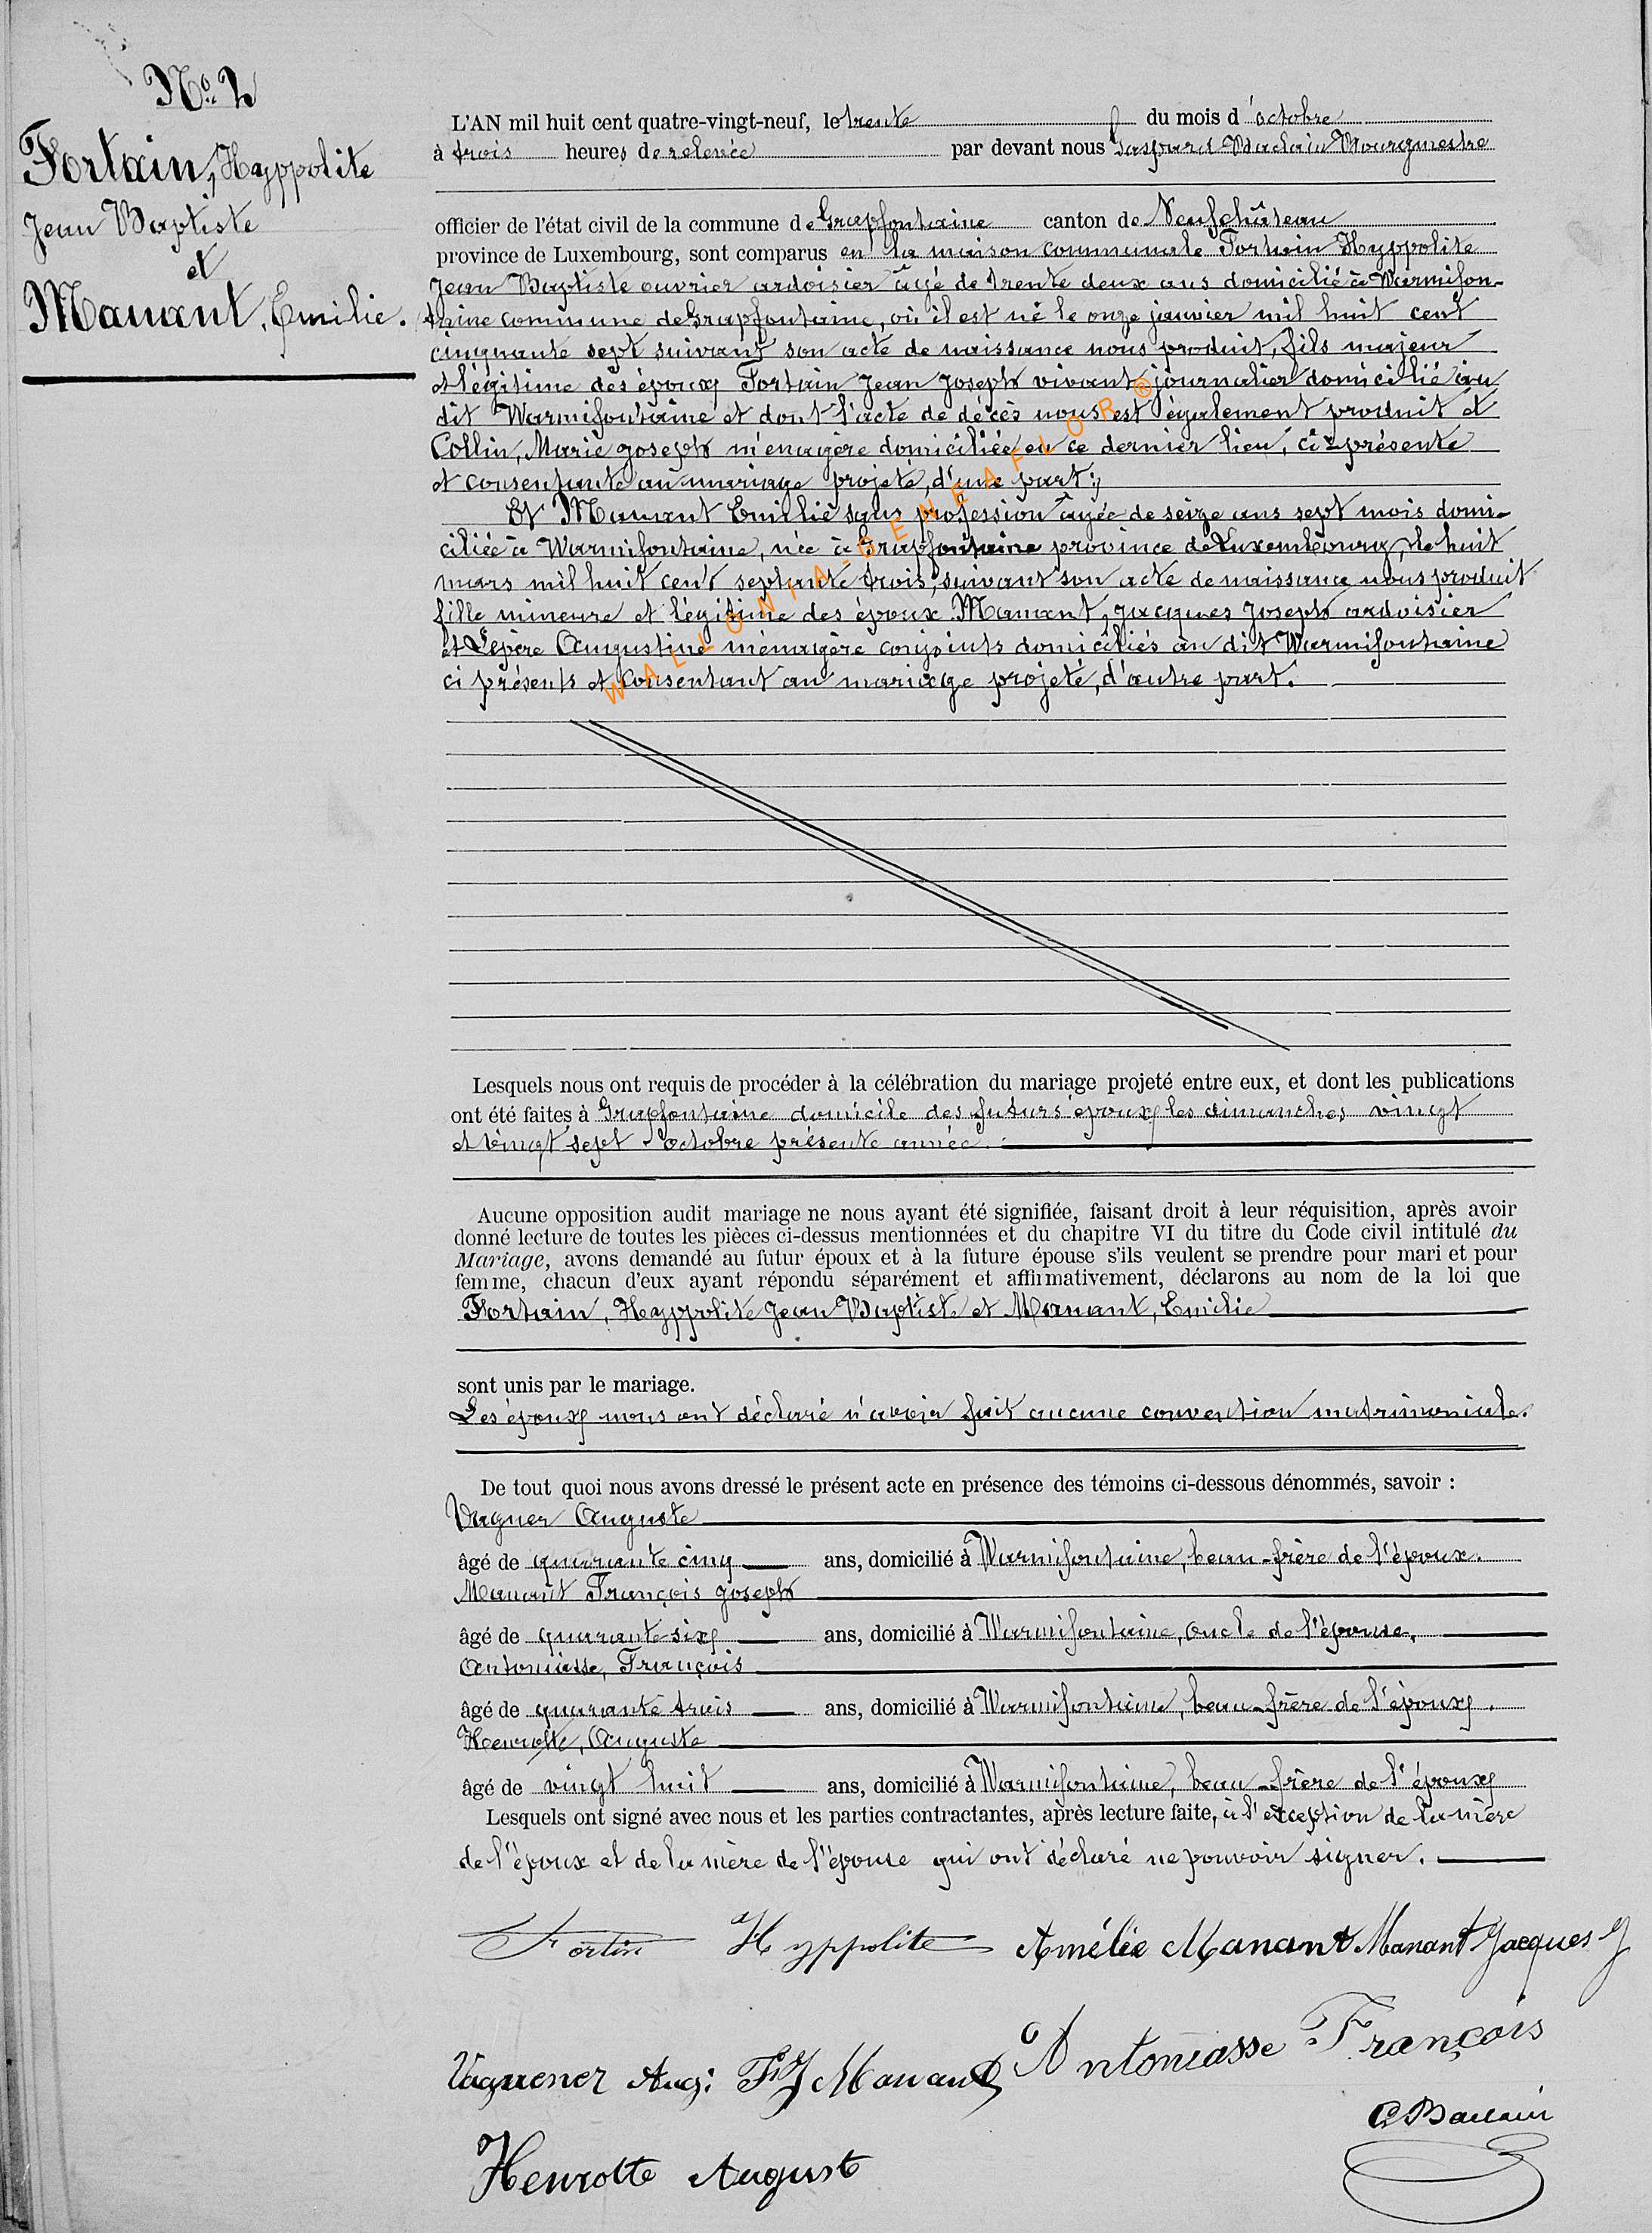 No. 2
Fortain, Hyppolite
Jean Baptiste
et
Manant, Emilie.
L'AN mil huit cent quatre-vingt-neuf, le trente du mois d'octobre
à trois heures de relevée par devant nous Gaspard Baclain Bourgmestre
officier de l'état civil de la commune de Grapfontaine canton de Neufchâteau
province de Luxembourg, sont comparus en la maison communale Fortain Hyppolite
Jean Baptiste ouvrier ardoisier âgé de trente deux ans domicilié à Warmifon-
taine commune de Grapfontaine, où il est né le onze janvier mil huit cent
cinquante sept suivant son acte de naissance nous produit, fils majeur
et légitime des époux Fortain Jean Joseph vivant journalier domicilié au
dit Warmifontaine et dont l'acte de décès nous est également produit et
Collin, Marie Joseph ménagère domiciliée en ce dernier lieu, ci-présente
et consentante au mariage projeté, d'une part;
Et Manant Emilie sans profession âgée de seize ans sept mois domi-
ciliée à Warmifontaine, née à Grapfontaine province de Luxembourg, le huit
mars mil huit cent septante trois, suivant son acte de naissance nous produit
fille mineure et légitime des époux Manant, Jacques Joseph ardoisier
et Lepère Augustine ménagère conjoints domiciliés au dit Warmifontaine
ci présents et consentant au mariage projeté, d'autre part.
WALLONIA-GENEAFLOR®
Lesquels nous ont requis de procéder à la célébration du mariage projeté entre eux, et dont les publications
ont été faites à Grapfontaine domicile des futurs époux les dimanches vingt
et vingt sept octobre présente année.
Aucune opposition audit mariage ne nous ayant été signifiée, faisant droit à leur réquisition, après avoir
donné lecture de toutes les pièces ci-dessus mentionnées et du chapitre VI du titre du Code civil intitulé du
Mariage, avons demandé au futur époux et à la future épouse s'ils veulent se prendre pour mari et pour
femme, chacun d'eux ayant répondu séparément et affirmativement, déclarons au nom de la loi que
Fortain, Hyppolite Jean Baptiste et Manant, Emilie
sont unis par le mariage.
Les époux nous ont déclaré n'avoir fait aucune convention matrimoniale.
De tout quoi nous avons dressé le présent acte en présence des témoins ci-dessous dénommés, savoir :
Vagner Auguste
âgé de quarante cinq ans, domicilié à Warmifontaine, beau-frère de l'époux.
Manant François Joseph
âgé de quarante-six ans, domicilié à Warmifontaine, oncle de l'épouse.
Antoniasse, François
âgé de quarante trois ans, domicilié à Warmifontaine, beau-frère de l'époux.
Henrotte, Auguste
âgé de vingt huit ans, domicilié à Warmifontaine, beau-frère de l'époux
Lesquels ont signé avec nous et les parties contractantes, après lecture faite, à l'exception de la mère
de l'époux et de la mère de l'épouse qui ont déclaré ne pouvoir signer.
Fortin Hyppolite Amélie Manant Manant Jacques J
Vaguener Aug: F J Manant Antoniasse François
G Baclain
Henrotte August